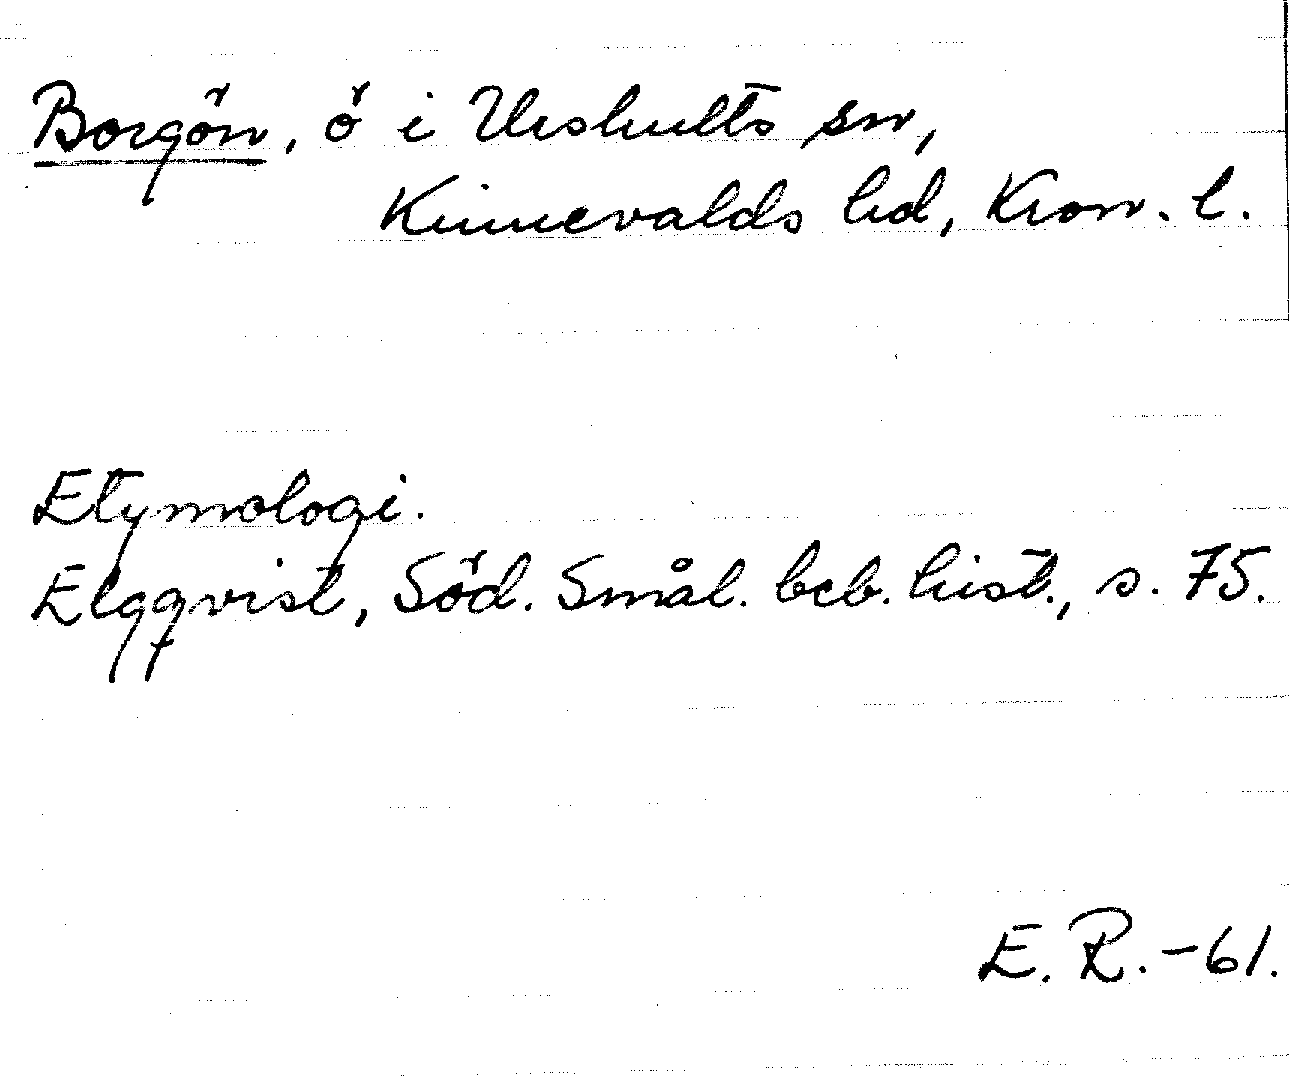 Borgön, ö i Urshults sn,
Kinnevalds hd, Kron. l.
Etymologi.
Elgqvist, Söd. Smål. beb. hist., s. 75.
E. R. -61.